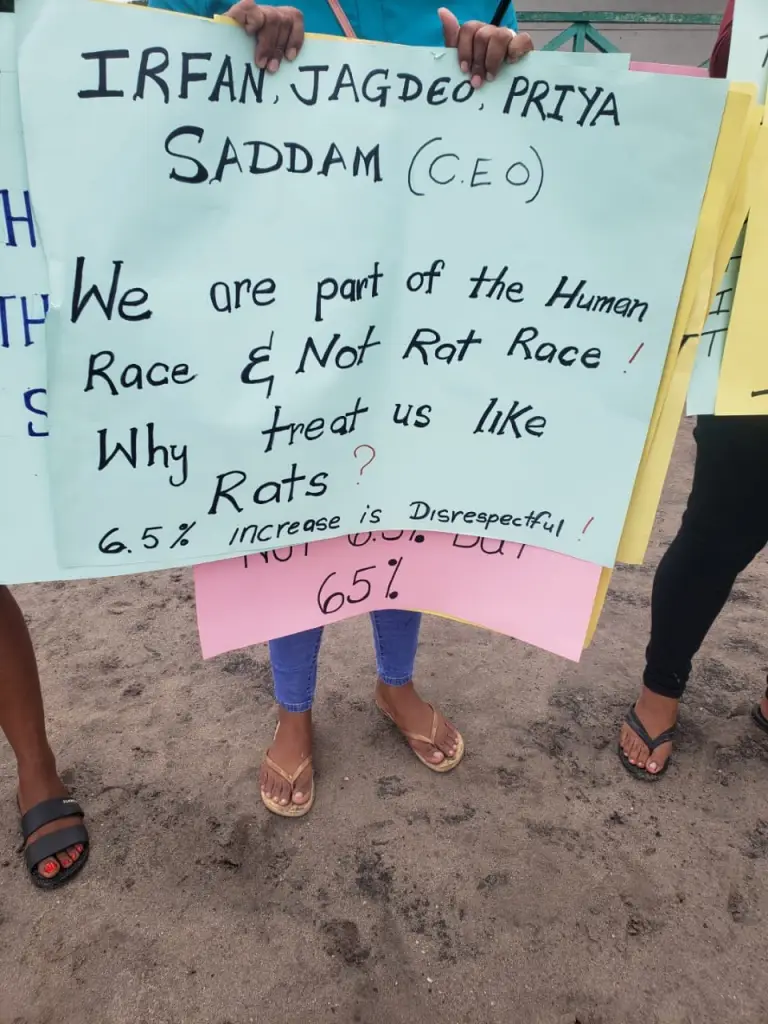 IRFAN, JAGDEO, PRIYA
SADDAM (C.E.O)
We are part of the Human
Race & Not Rat Race !
Why treat us like
Rats ?
6.5% increase is Disrespectful !
NOT 6.5% BUT
65%
H
TH
S